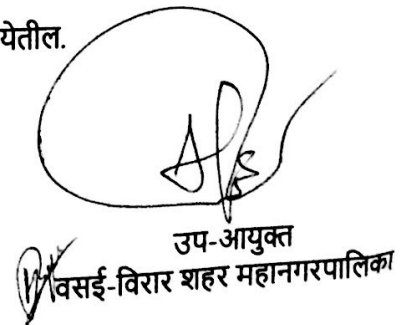 येतील.
उप-आयुक्त
वसई-विरार शहर महानगरपालिका